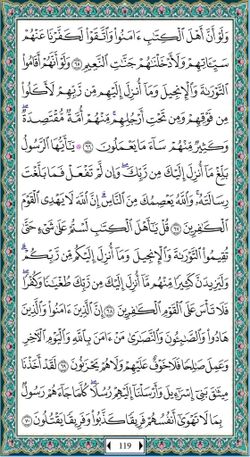 وَلَوْ أَنَّ أَهْلَ الْكِتَابِ ءَامَنُوا وَاتَّقَوْا لَكَفَّرْنَا عَنْهُمْ
سَيِّئَاتِهِمْ وَلَأَدْخَلْنَاهُمْ جَنَّاتِ النَّعِيمِ ٦٥ وَلَوْ أَنَّهُمْ أَقَامُوا
التَّوْرَاةَ وَالْإِنجِيلَ وَمَا أُنزِلَ إِلَيْهِم مِّن رَّبِّهِمْ لَأَكَلُوا
مِن فَوْقِهِمْ وَمِن تَحْتِ أَرْجُلِهِم مِّنْهُمْ أُمَّةٌ مُّقْتَصِدَةٌ
وَكَثِيرٌ مِّنْهُمْ سَاءَ مَا يَعْمَلُونَ ٦٦ يَاأَيُّهَا الرَّسُولُ
بَلِّغْ مَا أُنزِلَ إِلَيْكَ مِن رَّبِّكَ وَإِن لَّمْ تَفْعَلْ فَمَا بَلَّغْتَ
رِسَالَتَهُ وَاللَّهُ يَعْصِمُكَ مِنَ النَّاسِ إِنَّ اللَّهَ لَا يَهْدِي الْقَوْمَ
الْكَافِرِينَ ٦٧ قُلْ يَاأَهْلَ الْكِتَابِ لَسْتُمْ عَلَى شَيْءٍ حَتَّى
تُقِيمُوا التَّوْرَاةَ وَالْإِنجِيلَ وَمَا أُنزِلَ إِلَيْكُم مِّن رَّبِّكُمْ
وَلَيَزِيدَنَّ كَثِيرًا مِّنْهُم مَّا أُنزِلَ إِلَيْكَ مِن رَّبِّكَ طُغْيَانًا وَكُفْرًا
فَلَا تَأْسَ عَلَى الْقَوْمِ الْكَافِرِينَ ٦٨ إِنَّ الَّذِينَ ءَامَنُوا وَالَّذِينَ
هَادُوا وَالصَّابِئُونَ وَالنَّصَارَى مَنْ ءَامَنَ بِاللَّهِ وَالْيَوْمِ الْآخِرِ
وَعَمِلَ صَالِحًا فَلَا خَوْفٌ عَلَيْهِمْ وَلَا هُمْ يَحْزَنُونَ ٦٩ لَقَدْ أَخَذْنَا
مِيثَاقَ بَنِي إِسْرَائِيلَ وَأَرْسَلْنَا إِلَيْهِمْ رُسُلًا كُلَّمَا جَاءَهُمْ رَسُولٌ
بِمَا لَا تَهْوَى أَنفُسُهُمْ فَرِيقًا كَذَّبُوا وَفَرِيقًا يَقْتُلُونَ ٧٠
119